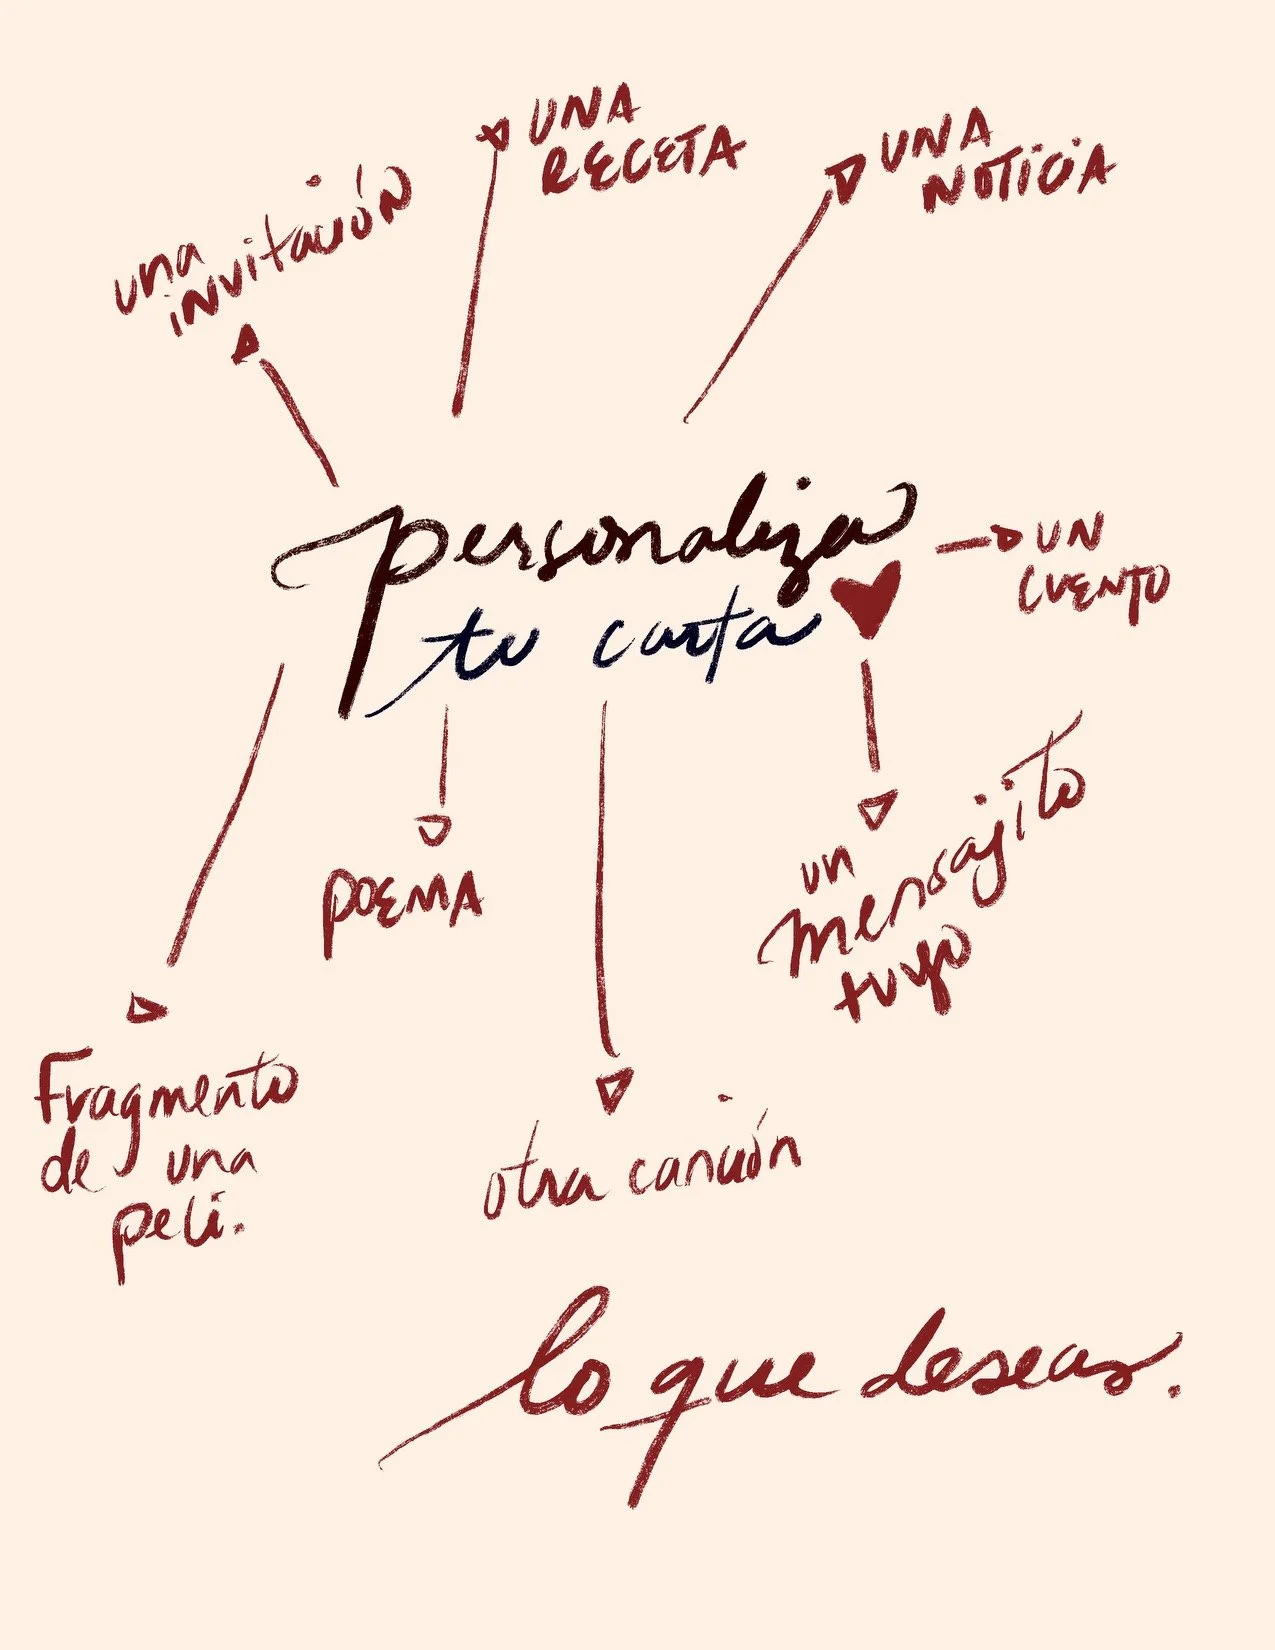 UNA
RECETA
UNA
NOTICIA
una
invitación
personaliza
tu carta
UN
CUENTO
POEMA
un
mensajito
tuyo
Fragmento
de una
peli.
otra canción
lo que deseas.